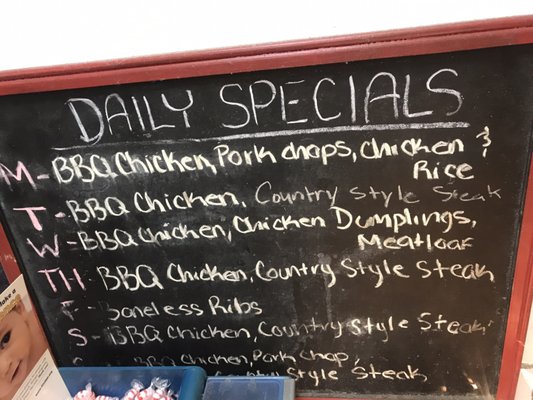 DAILY SPECIALS
M - BBQ Chicken, Pork chops, chicken &
Rice
T - BBQ Chicken, Country Style Steak
W - BBQ Chicken, Chicken Dumplings,
Meatloaf
TH - BBQ Chicken, Country Style Steak
F - Boneless Ribs
S - BBQ Chicken, Country Style Steak
S - BBQ Chicken, Pork Chop,
Country Style Steak